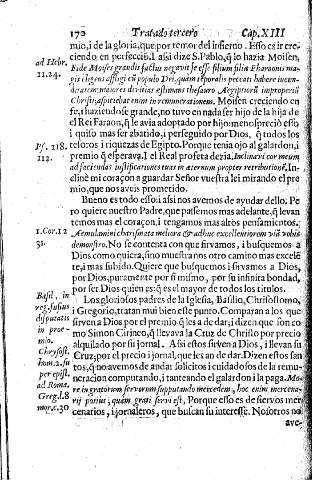 170 Tratado tercero Cap. XIII
mio, i de la gloria, que por temor del infierno. Esso es ir cre-
ciendo en perfecciõ. I assi dize S. Pablo, q̃ lo hazia Moisen,
ad Hebr. Fide Moises grandis factus negavit se esse filium filiæ Pharaonis ma-
11.24. gis eligens affligi cũ populo Dei, quam temporalis peccati habere iucun-
ditatem: maiores divitias æstimans thesauro Ægiptiorũ improperiũ
Christi; aspiciebat enim in remunerationem. Moisen creciendo en
fe, i haziendose grande, no tuvo en nada ser hijo de la hija de
el Rei Faraon, q̃ le avia adoptado por hijo: menospreciò esso
i quiso mas ser abatido, i perseguido por Dios, q̃ todos los
Ps. 218. tesoros i riquezas de Egipto. Porque tenia ojo al galardon, i
112. premio q̃ esperava. I el Real profeta dezia. Inclinavi cor meum
ad faciendas iustificationes tuas in aeternum propter retributionẽ, In-
cliné mi coraçon a guardar Señor vuestra lei mirando el pre-
mio, que nos aveis prometido.
Bueno es todo essoi assi nos avemos de ayudar dello. Pe
ro quiere nuestro Padre, que passemos mas adelante, q̃ levan
temos mas el coraçon, i tengamos mas altos pensamientos.
1. Cor. 12 Aemulamini charismata meliora & adhuc excellentiorem viã vobis
31. demonstro. No se contenta con que sirvamos, i busquemos a
Dios como quiera, sino muestranos otro camino mas excelẽ
te, i mas subido. Quiere que busquemos i sirvamos a Dios,
por Dios, puramente por si mismo, por su infinita bondad,
por ser Dios quien es: q̃ es el mayor de todos los titulos.
Basil. in Los gloriosos padres de la Iglesia, Basilio, Chrisostomo,
reg. fusius i Gregorio, tratan mui bien este punto. Comparan a los que
disputatis sirven a Dios por el premio q̃ les a de dar; i dizen que son co
in proe- mo Simon Cirineo, q̃ llevava la Cruz de Christo por precio
mio. alquilado por su jornal. Assi estos sirven a Dios, i llevan su
Chrysost. Cruz; por el precio i jornal, que les an de dar. Dizen estos san
hom. 2. su tos, q̃ no avemos de andar solicitos i cuidadosos de la remu-
per epist. neracion computando, i tanteando el galardon i la paga. Mo-
ad Roma. re ingratorum servorum supputando mercedem, hoc enim mercena-
Greg. l. 8 rij potius; quam grati servi est, Porque esso es de siervos mer
mor. c. 30 cenarios, i jornaleros, que buscan su interesse. Nosotros no
ave-